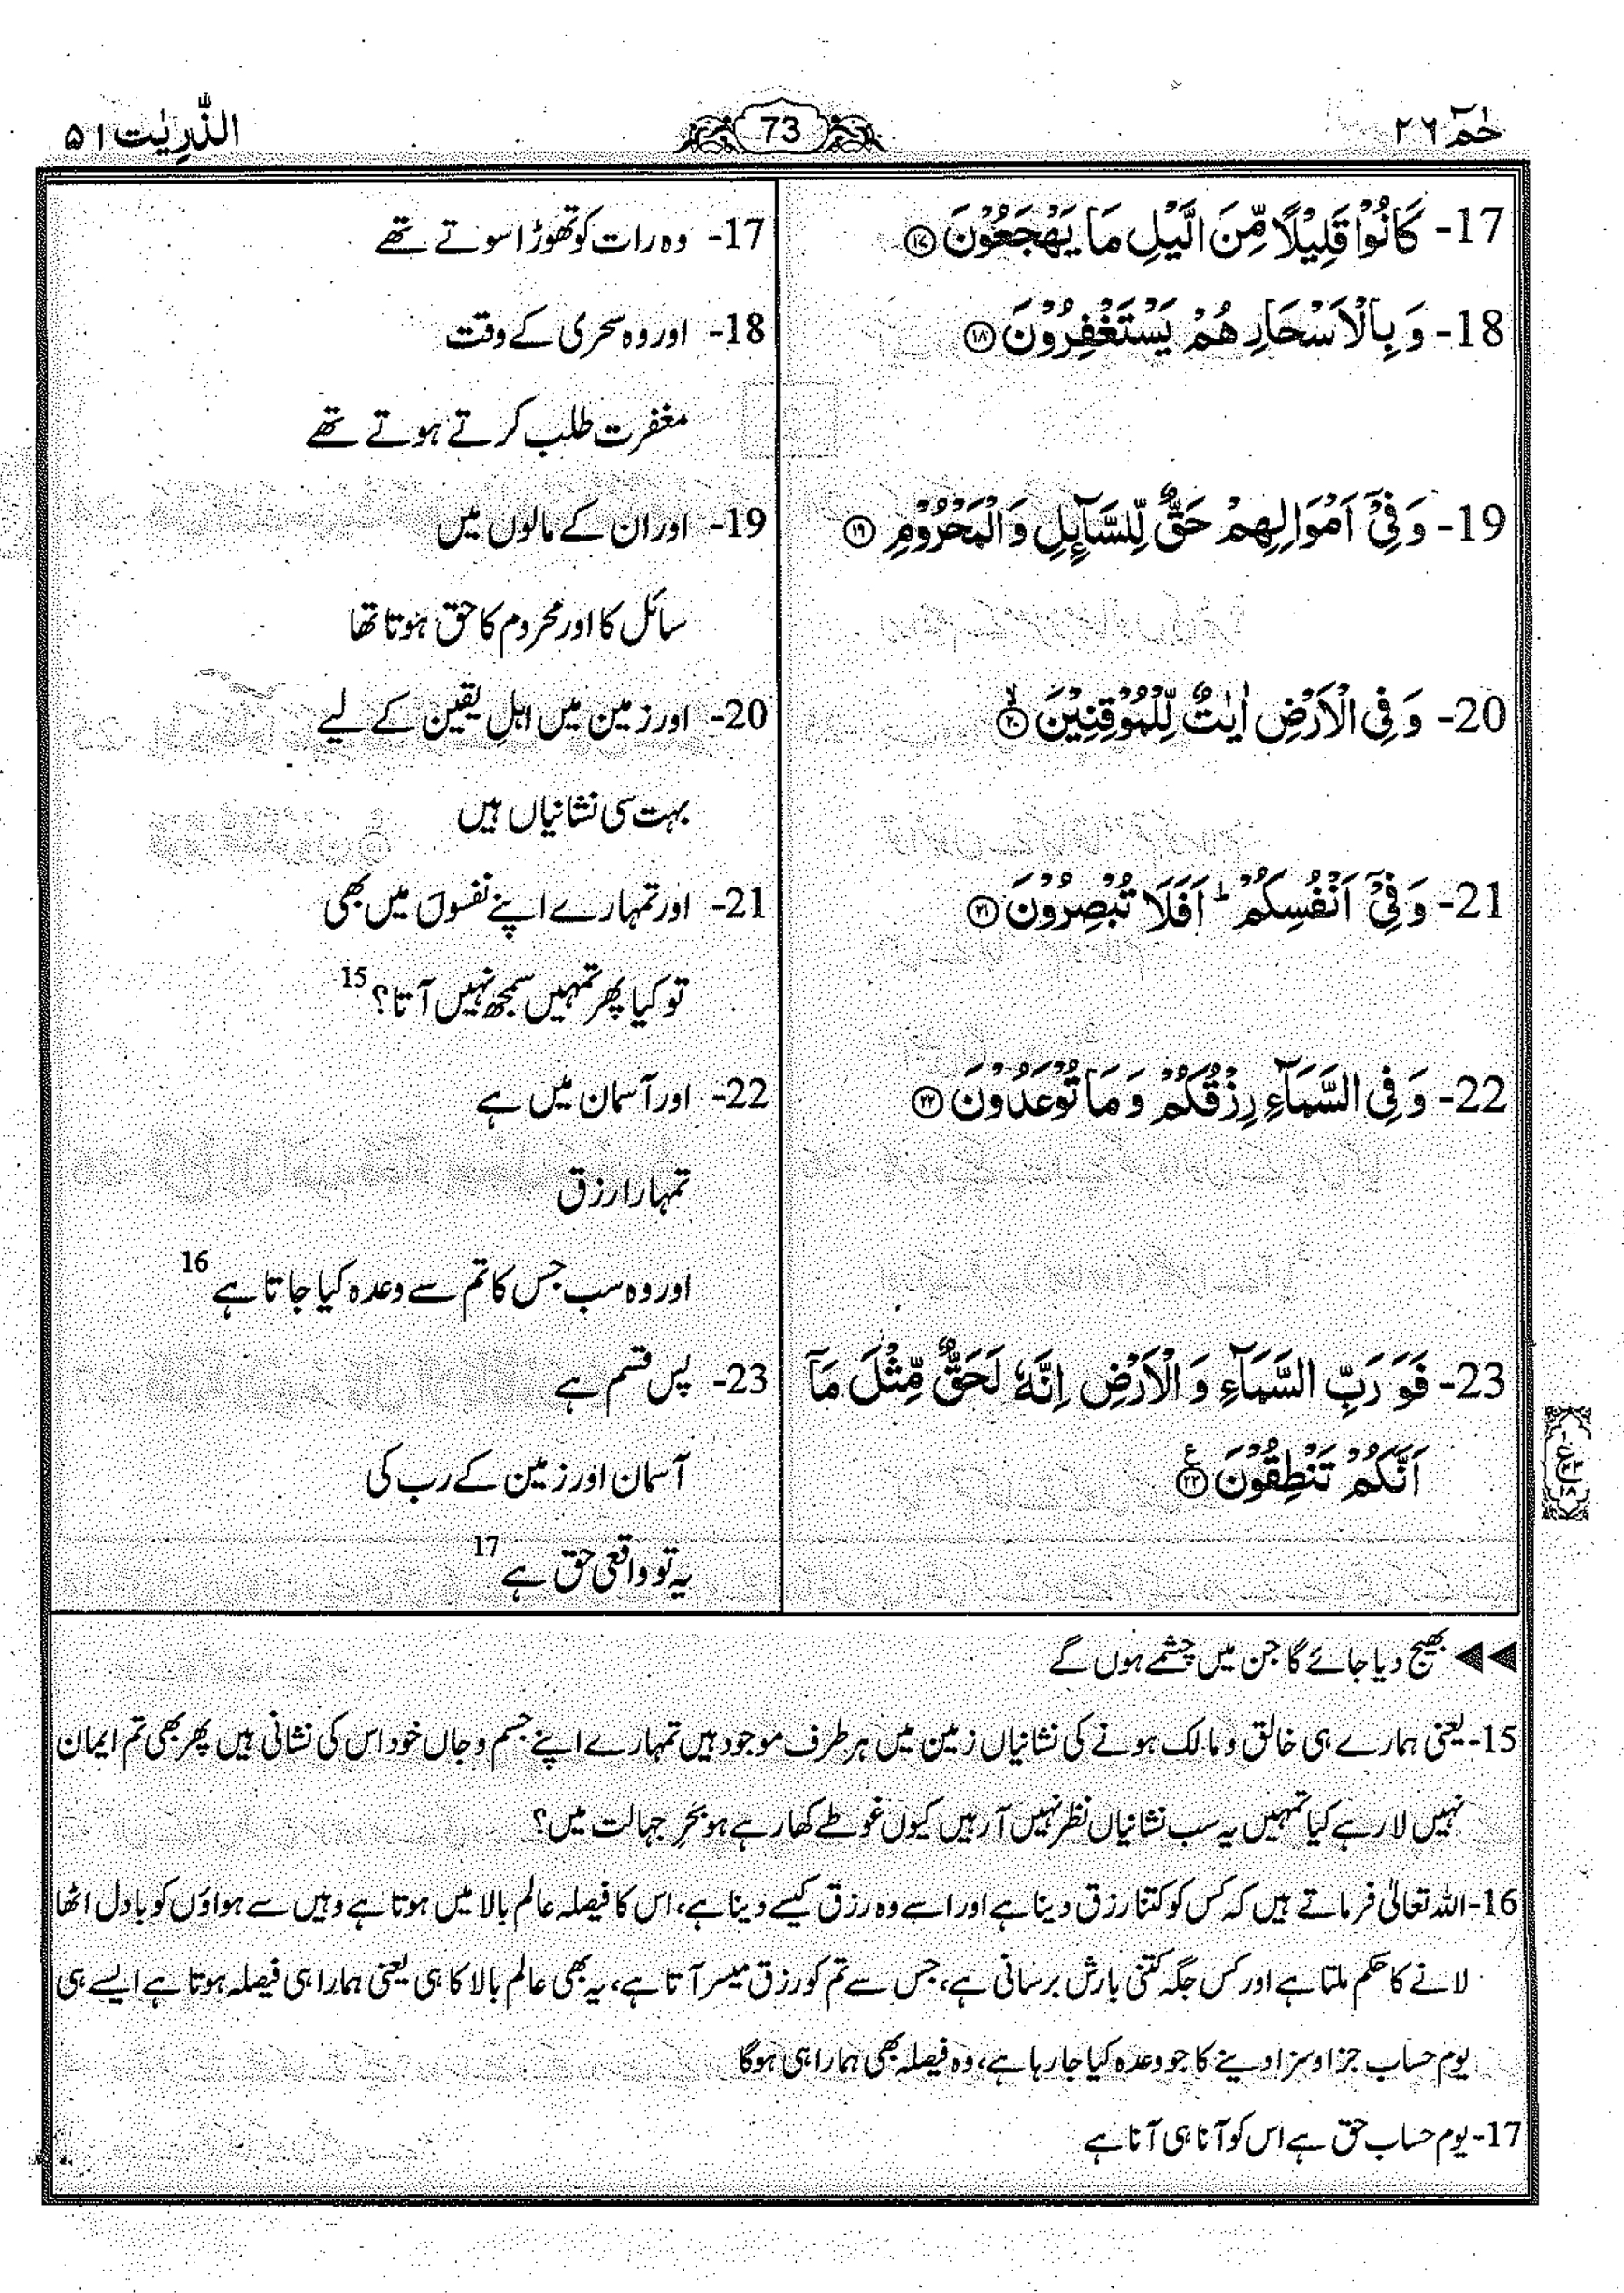 حٰمٓ ۲۶
73
الذّٰرِیٰت ۵۱
17- كَانُوْا قَلِيْلًا مِّنَ الَّيْلِ مَا يَهْجَعُوْنَ ﴿۱۷﴾
18- وَ بِالْاَسْحَارِ هُمْ يَسْتَغْفِرُوْنَ ﴿۱۸﴾
19- وَ فِيْٓ اَمْوَالِهِمْ حَقٌّ لِّلسَّآئِلِ وَ الْمَحْرُوْمِ ﴿۱۹﴾
20- وَ فِي الْاَرْضِ اٰيٰتٌ لِّلْمُوْقِنِيْنَ ﴿۲۰﴾ۙ
21- وَ فِيْٓ اَنْفُسِكُمْ ؕ اَفَلَا تُبْصِرُوْنَ ﴿۲۱﴾
22- وَ فِي السَّمَآءِ رِزْقُكُمْ وَ مَا تُوْعَدُوْنَ ﴿۲۲﴾
23- فَوَ رَبِّ السَّمَآءِ وَ الْاَرْضِ اِنَّهٗ لَحَقٌّ مِّثْلَ مَآ
اَنَّكُمْ تَنْطِقُوْنَ ﴿۲۳﴾ع
17- وہ رات کو تھوڑا سوتے تھے
18- اور وہ سحری کے وقت
مغفرت طلب کرتے ہوتے تھے
19- اور ان کے مالوں میں
سائل کا اور محروم کا حق ہوتا تھا
20- اور زمین میں اہلِ یقین کے لیے
بہت سی نشانیاں ہیں
21- اور تمہارے اپنے نفسوں میں بھی
تو کیا پھر تمہیں سمجھ نہیں آتا؟ 15
22- اور آسمان میں ہے
تمہارا رزق
اور وہ سب جس کا تم سے وعدہ کیا جاتا ہے 16
23- پس قسم ہے
آسمان اور زمین کے رب کی
یہ تو واقعی حق ہے 17
◀◀ بھیج دیا جائے گا جن میں چشمے ہوں گے
15- یعنی ہمارے ہی خالق و مالک ہونے کی نشانیاں زمین میں ہر طرف موجود ہیں تمہارے اپنے جسم و جاں خود اس کی نشانی ہیں پھر بھی تم ایمان
نہیں لا رہے کیا تمہیں یہ سب نشانیاں نظر نہیں آ رہیں کیوں غوطے کھا رہے ہو بحرِ جہالت میں؟
16- اللہ تعالیٰ فرماتے ہیں کہ کس کو کتنا رزق دینا ہے اور اسے وہ رزق کیسے دینا ہے، اس کا فیصلہ عالم بالا میں ہوتا ہے وہیں سے ہواؤں کو بادل اٹھا
لانے کا حکم ملتا ہے اور کس جگہ کتنی بارش برسانی ہے، جس سے تم کو رزق میسر آتا ہے، یہ بھی عالم بالا کا ہی یعنی ہمارا ہی فیصلہ ہوتا ہے ایسے ہی
یوم حساب جزا و سزا دینے کا جو وعدہ کیا جا رہا ہے، وہ فیصلہ بھی ہمارا ہی ہوگا
17- یوم حساب حق ہے اس کو آنا ہی آنا ہے